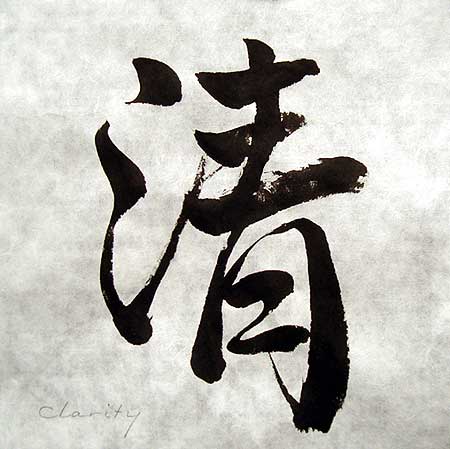 清
Clarity